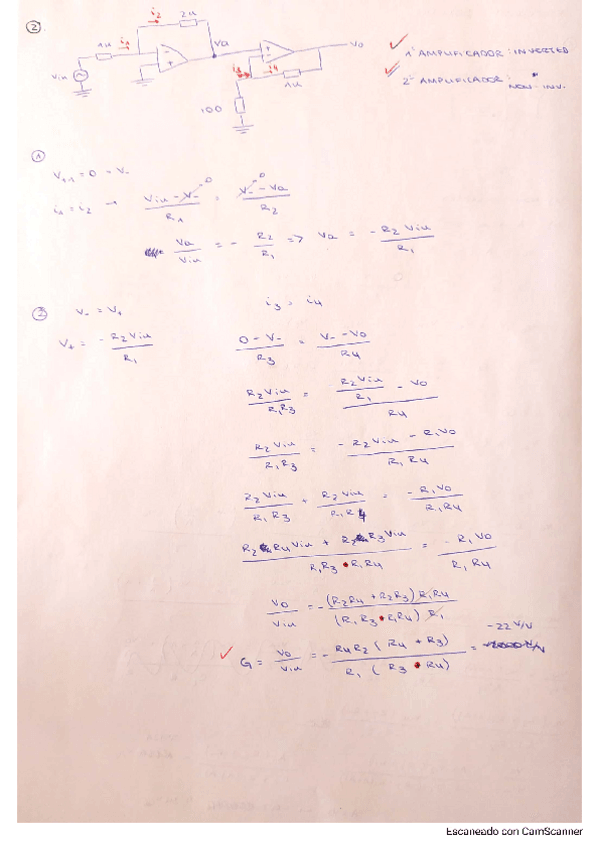 2
i2
2k
1k
i1
Va
Vo
Vin
i3
i4
1k
100
✓ 1º AMPLIFICADOR: INVERTED
✓ 2º AMPLIFICADOR: NON-INV.
1
V+1 = 0 = V-
i1 = i2 → (Vin - V-)/R1 = (V- - Va)/R2
0 0
Va/Vin = - R2/R1 => Va = - R2 Vin/R1
2
V- = V+
i3 = i4
V+ = - R2 Vin/R1
(0 - V-)/R3 = (V- - Vo)/R4
R2 Vin/R1R3 = (R2 Vin/R1 - Vo)/R4
R2 Vin/R1 R3 = (- R2 Vin - R1 Vo)/R1 R4
R2 Vin/R1 R3 + R2 Vin/R1 R4 = - R1 Vo/R1 R4
(R2 R4 Vin + R2 R3 Vin)/R1R3 • R1R4 = - R1 Vo/R1 R4
Vo/Vin = - (R2R4 + R2R3) R1R4/(R1 R3 • R1R4) R1
✓ G = Vo/Vin = - R4 R2 (R4 + R3)/R1 (R3 • R4) = -22 V/V
Escaneado con CamScanner